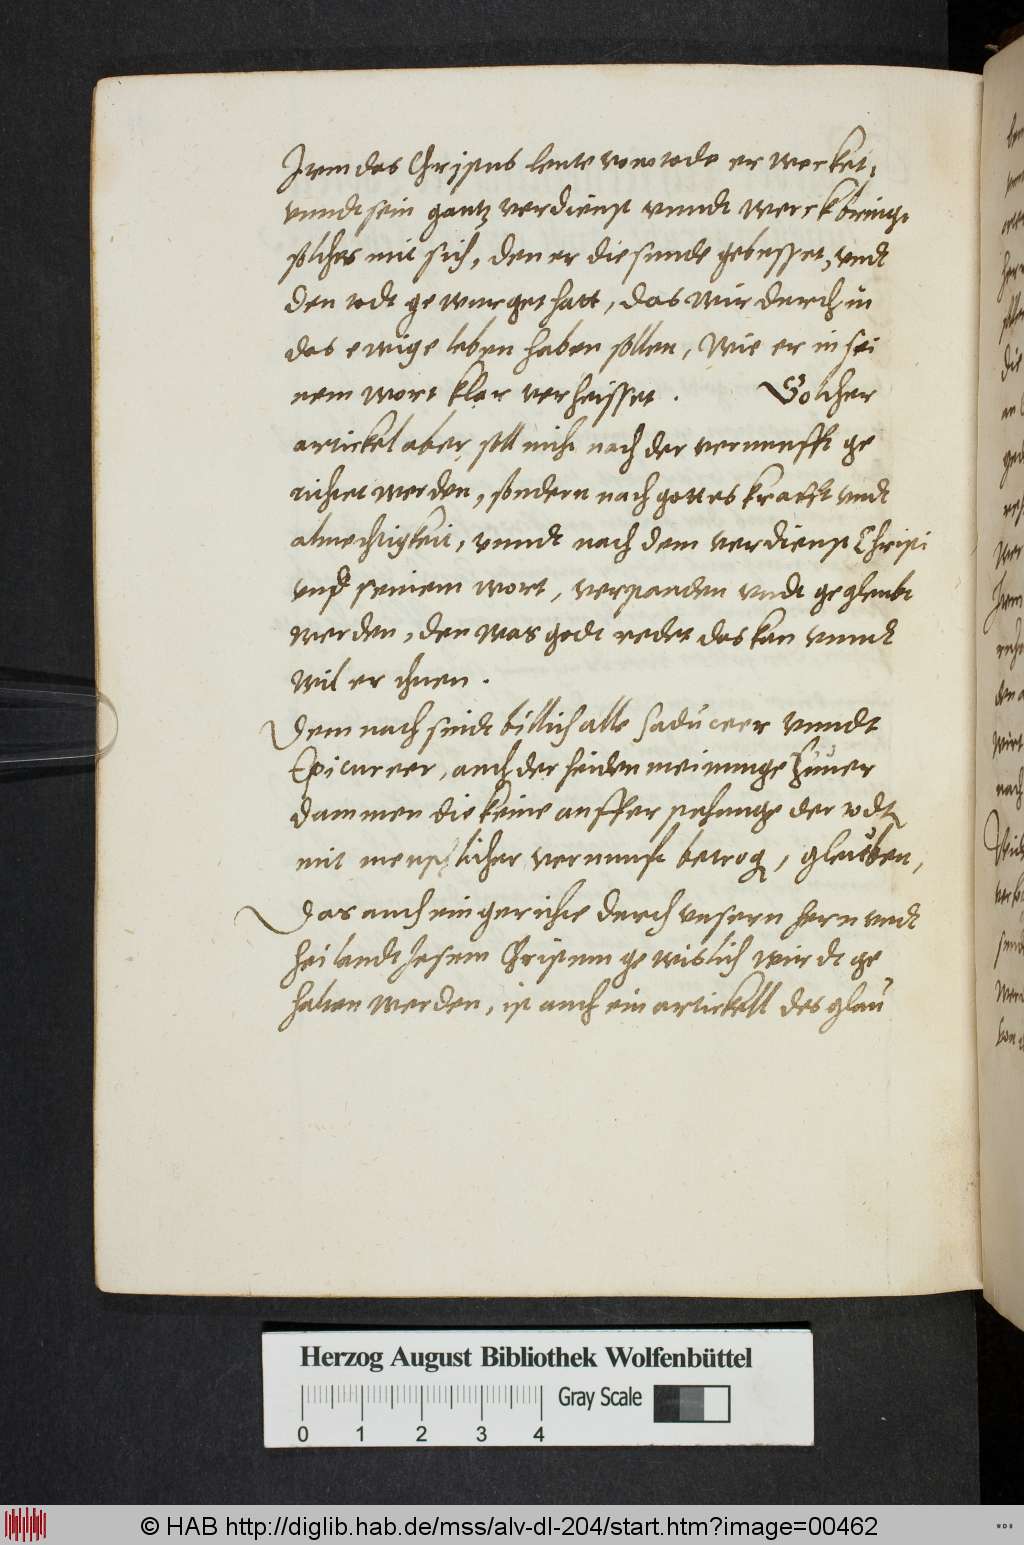 Item das Christus leute vom tode er wecket,
vnndt sein gantz verdienst vnndt werck bringt
solches mit sich, den er die sunde gebusset, vndt
den todt ge wurget hatt, das wir durch in
das ewige leben haben sollen, Wie er in sei
nem wort klar verheisset . Solcher
artickel aber soll nicht nach der vernunfft ge
richtet werden, sondern nach gottes krafft vndt
almechtigkeit, vnndt nach dem verdienst Christi
vnd seinem wort, verstanden vndt gegleubt
werden, den was godt redet das kan vnndt
wil er thuen .
Dem nach sindt billich alle Saduceer vnndt
Epicureer, auch der heiden meinunge zuuer
dammen die keine aufferstehunge der todt
mit menschlicher vernunft betrog, gleuben,
Das auch ein gerichte durch vnsern hern vndt
heilandt Jesum Christum gewislich wirdt ge
halten werden, ist auch ein artickell des glau
Herzog August Bibliothek Wolfenbüttel
Gray Scale
0 1 2 3 4
© HAB http://diglib.hab.de/mss/alv-dl-204/start.htm?image=00462